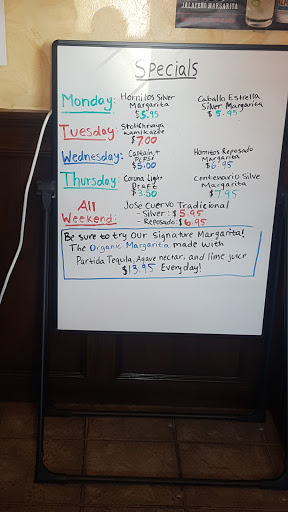 JALAPEÑO MARGARITA
Specials
Monday: Hornillos Silver Margarita $5.95
Caballo Estrella Silver Margarita $5.95
Tuesday: Stolichnaya Kamikazee $7.00
Wednesday: Captain + Pepsi $5.00
Hornitos Reposado Margarita $6.95
Thursday: Corona Light Draft $3.50
Centenario Silve Margarita $7.95
All Weekend: José Cuervo Tradicional
- Silver: $5.95
- Reposado: $6.95
Be sure to try our signature Margarita!
The Organic Margarita made with
Partida Tequila, Agave nectar, and lime juice
$13.95 Everyday!